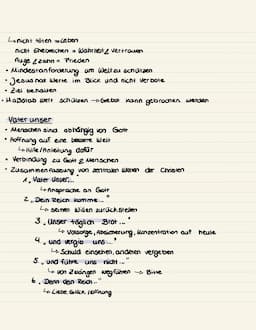 ↳ nicht töten → Leben
nicht Ehebrechen → Wahrheit & Vertrauen
Auge & Zahn → Frieden
• Mindestanforderung um Welt zu schützen
• Jesus hat Werte im Blick und nicht Verbote
• Ziel behalten
• Maßstab Welt schützen → Gebot kann gebrochen werden
Vater unser
• Menschen sind abhängig von Gott
• Hoffnung auf eine bessere Welt
↳ Hilfe/Anleitung dafür
• Verbindung zu Gott & Menschen
• Zusammenfassung von zentralen Ideen der Christen
1. „Vater Unser..."
↳ Ansprache an Gott
2. „Dein Reich komme..."
↳ seinen Willen zurückstellen
3. „Unser täglich Brot..."
↳ Vorsorge, Absicherung, Konzentration auf heute
4. „und vergib uns..."
↳ Schuld einsehen, anderen vergeben
5. „und führe uns nicht..."
↳ von Zwängen wegführen → Bitte
6. „Denn dein Reich..."
↳ Liebe, Glück, Hoffnung